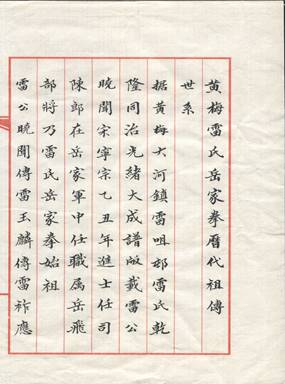 黄梅雷氏岳家拳曆代祖傳
世系
据黄梅大河鎮雷咀邨雷氏乾
隆同治光緒大成譜版載雷公
曉開宋寧宗乙丑年進士任司
陳郎在岳家軍中任職属岳飛
部將乃雷氏岳家拳始祖
雷公曉開傳雷玉麟傳雷祚應